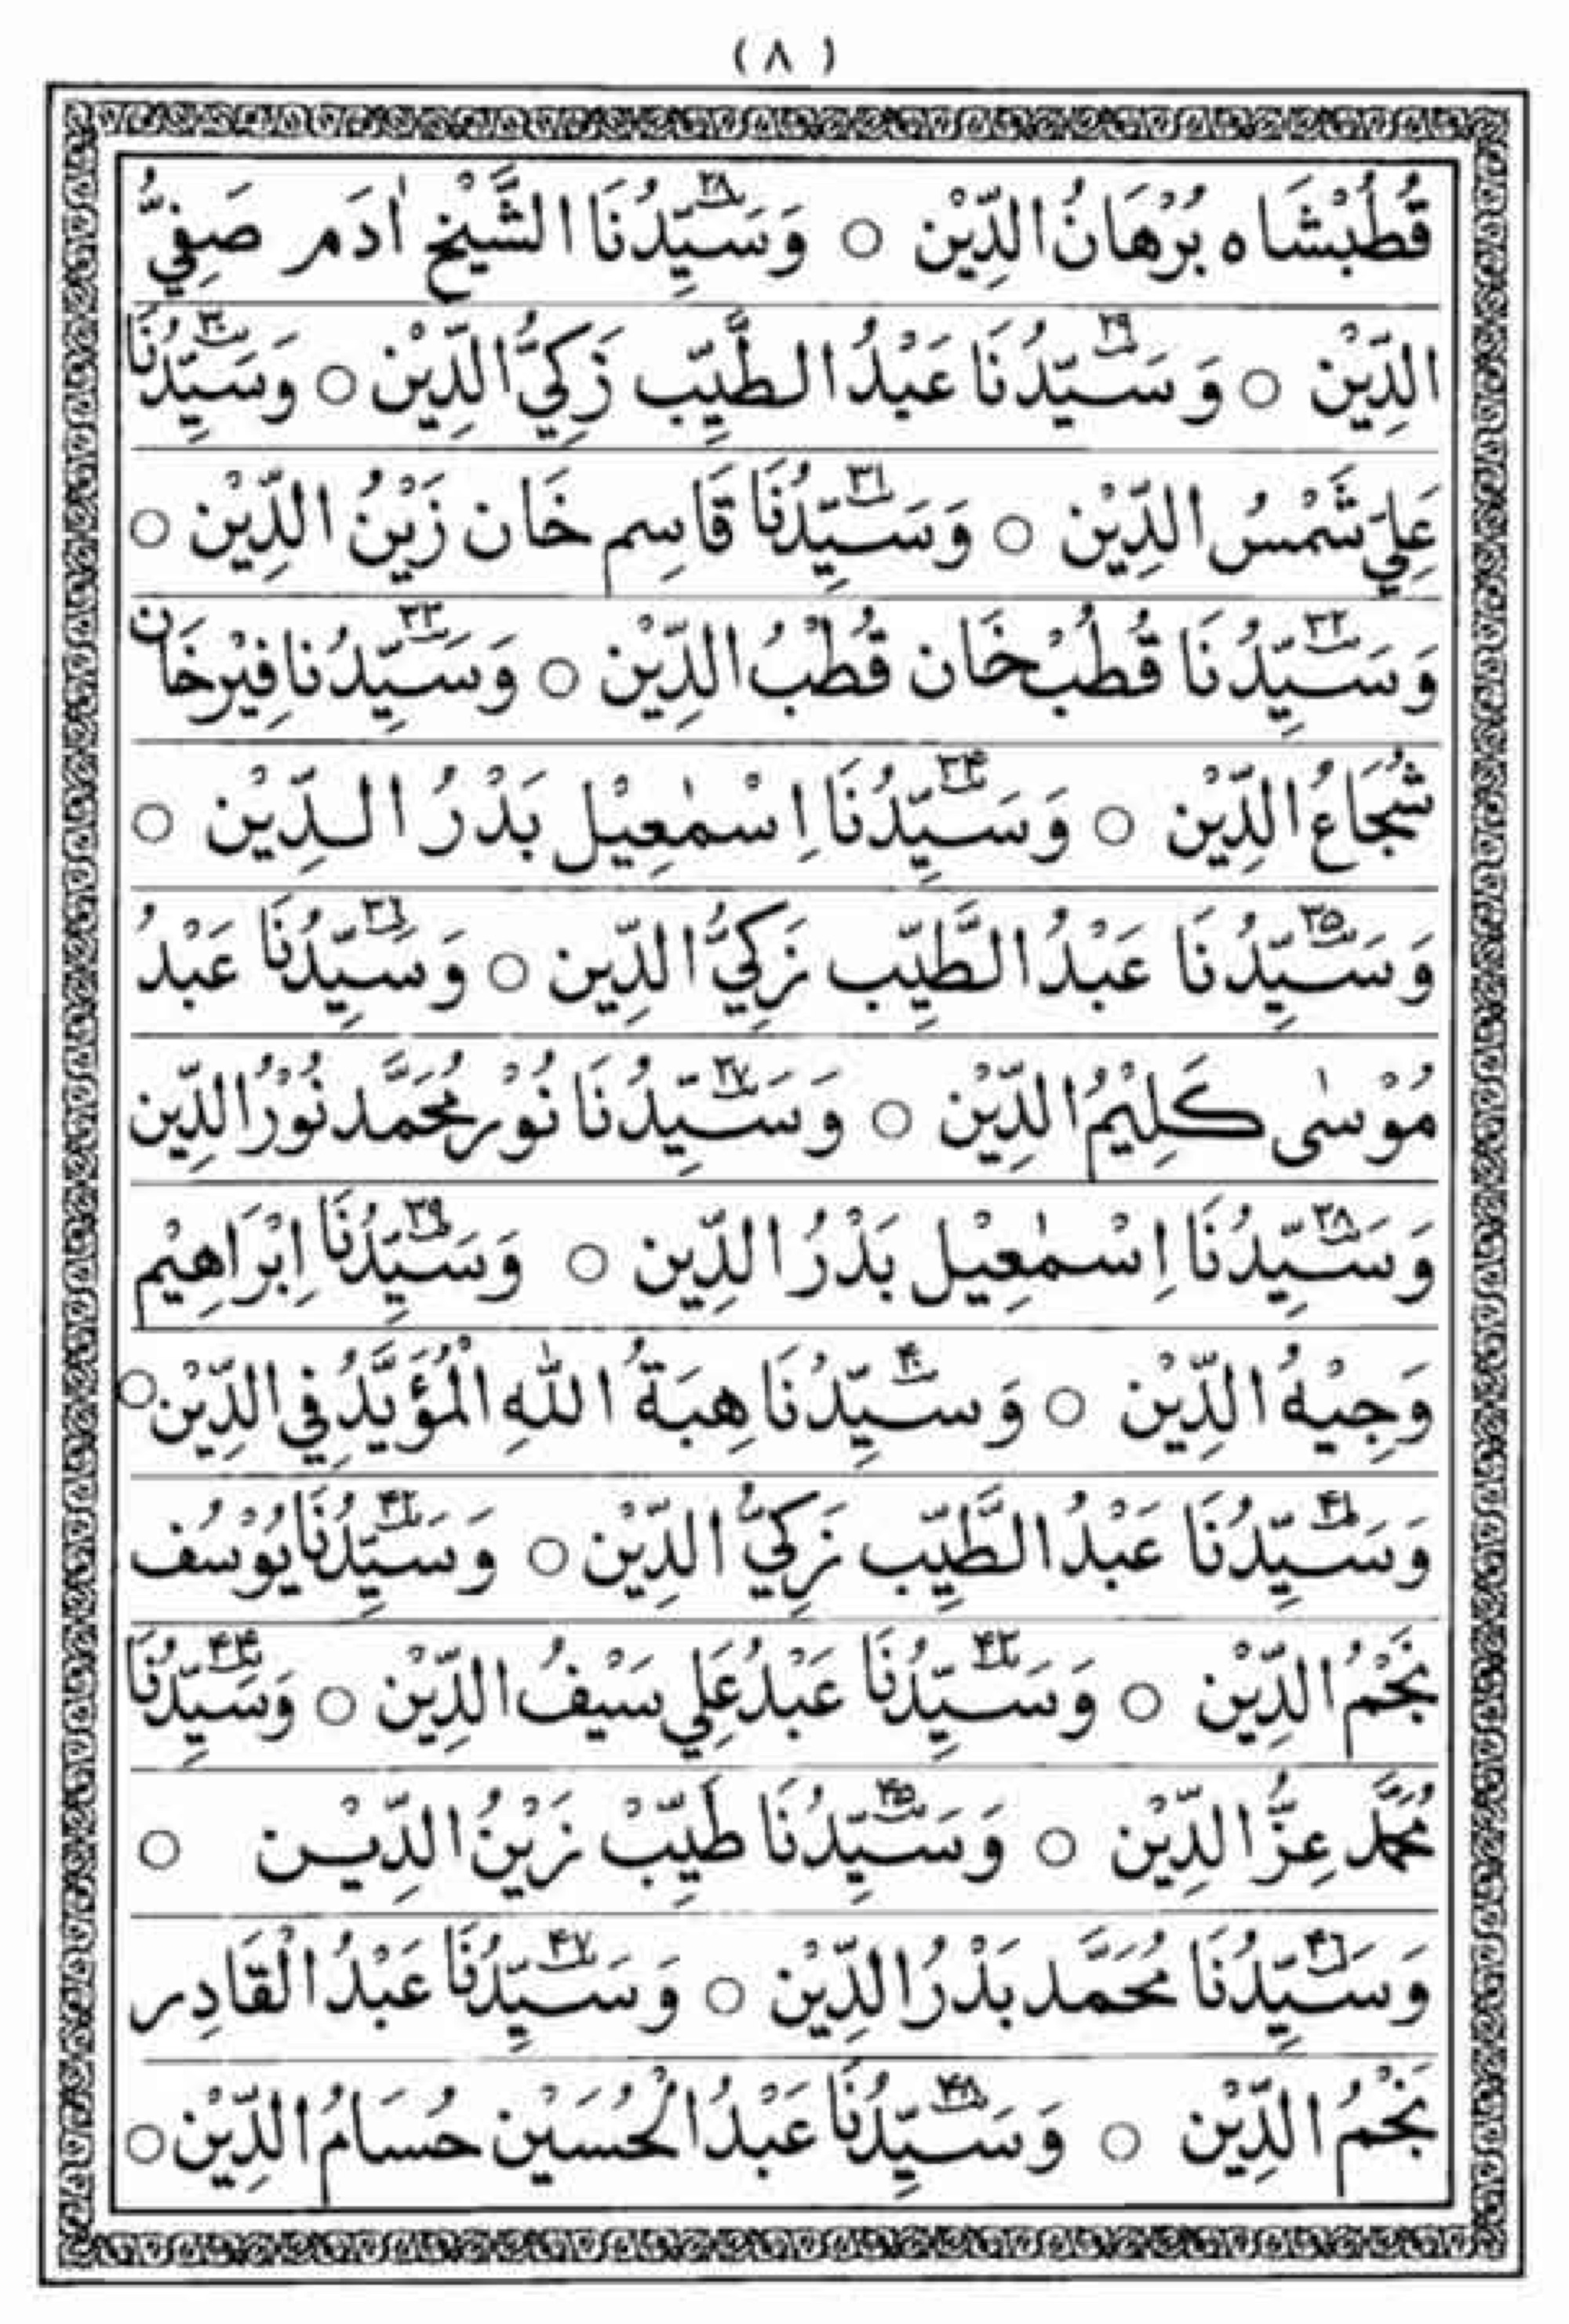 ( ٨ )
قُطُبْشَاه بُرْهَانُ الدِّيْن ○ وَسَيِّدُنَا ٢٨ الشَّيْخ اٰدَم صَفِيُّ
الدِّيْن ○ وَ سَيِّدُنَا ٢٩ عَبْدُ الطَّيِّب زَكِيُّ الدِّيْن ○ وَسَيِّدُنَا ٣٠
عَلِيّ شَمْسُ الدِّيْن ○ وَسَيِّدُنَا ٣١ قَاسِم خَان زَيْنُ الدِّيْن ○
وَسَيِّدُنَا ٣٢ قُطُبْخَان قُطْبُ الدِّيْن ○ وَسَيِّدُنا ٣٣ فِيْرخَان
شُجَاعُ الدِّيْن ○ وَسَيِّدُنَا ٣۴ اِسْمٰعِيْل بَدْرُ الدِّيْن ○
وَسَيِّدُنَا ٣۵ عَبْدُ الطَّيِّب زَكِيُّ الدِّيْن ○ وَسَيِّدُنَا ٣٦ عَبْدُ
مُوْسٰى كَلِيْمُ الدِّيْن ○ وَسَيِّدُنَا ٣٧ نُوْر مُحَمَّد نُوْرُ الدِّيْن
وَسَيِّدُنَا ٣٨ اِسْمٰعِيْل بَدْرُ الدِّيْن ○ وَسَيِّدُنَا ٣٩ اِبْرَاهِيْم
وَجِيْهُ الدِّيْن ○ وَسَيِّدُنَا ۴٠ هِبَةُ اللّٰهِ الْمُؤَيَّدُ فِي الدِّيْن ○
وَسَيِّدُنَا ۴١ عَبْدُ الطَّيِّب زَكِيُّ الدِّيْن ○ وَسَيِّدُنَا ۴٢ يُوْسُف
نَجْمُ الدِّيْن ○ وَسَيِّدُنَا ۴٣ عَبْدُ عَلِي سَيْفُ الدِّيْن ○ وَسَيِّدُنَا ۴۴
مُحَمَّد عِزُّ الدِّيْن ○ وَسَيِّدُنَا ۴۵ طَيِّبْ زَيْنُ الدِّيْن ○
وَسَيِّدُنَا ۴٦ مُحَمَّد بَدْرُ الدِّيْن ○ وَسَيِّدُنَا ۴٧ عَبْدُ الْقَادِر
نَجْمُ الدِّيْن ○ وَسَيِّدُنَا ۴٨ عَبْدُ الْحُسَيْن حُسَامُ الدِّيْن ○